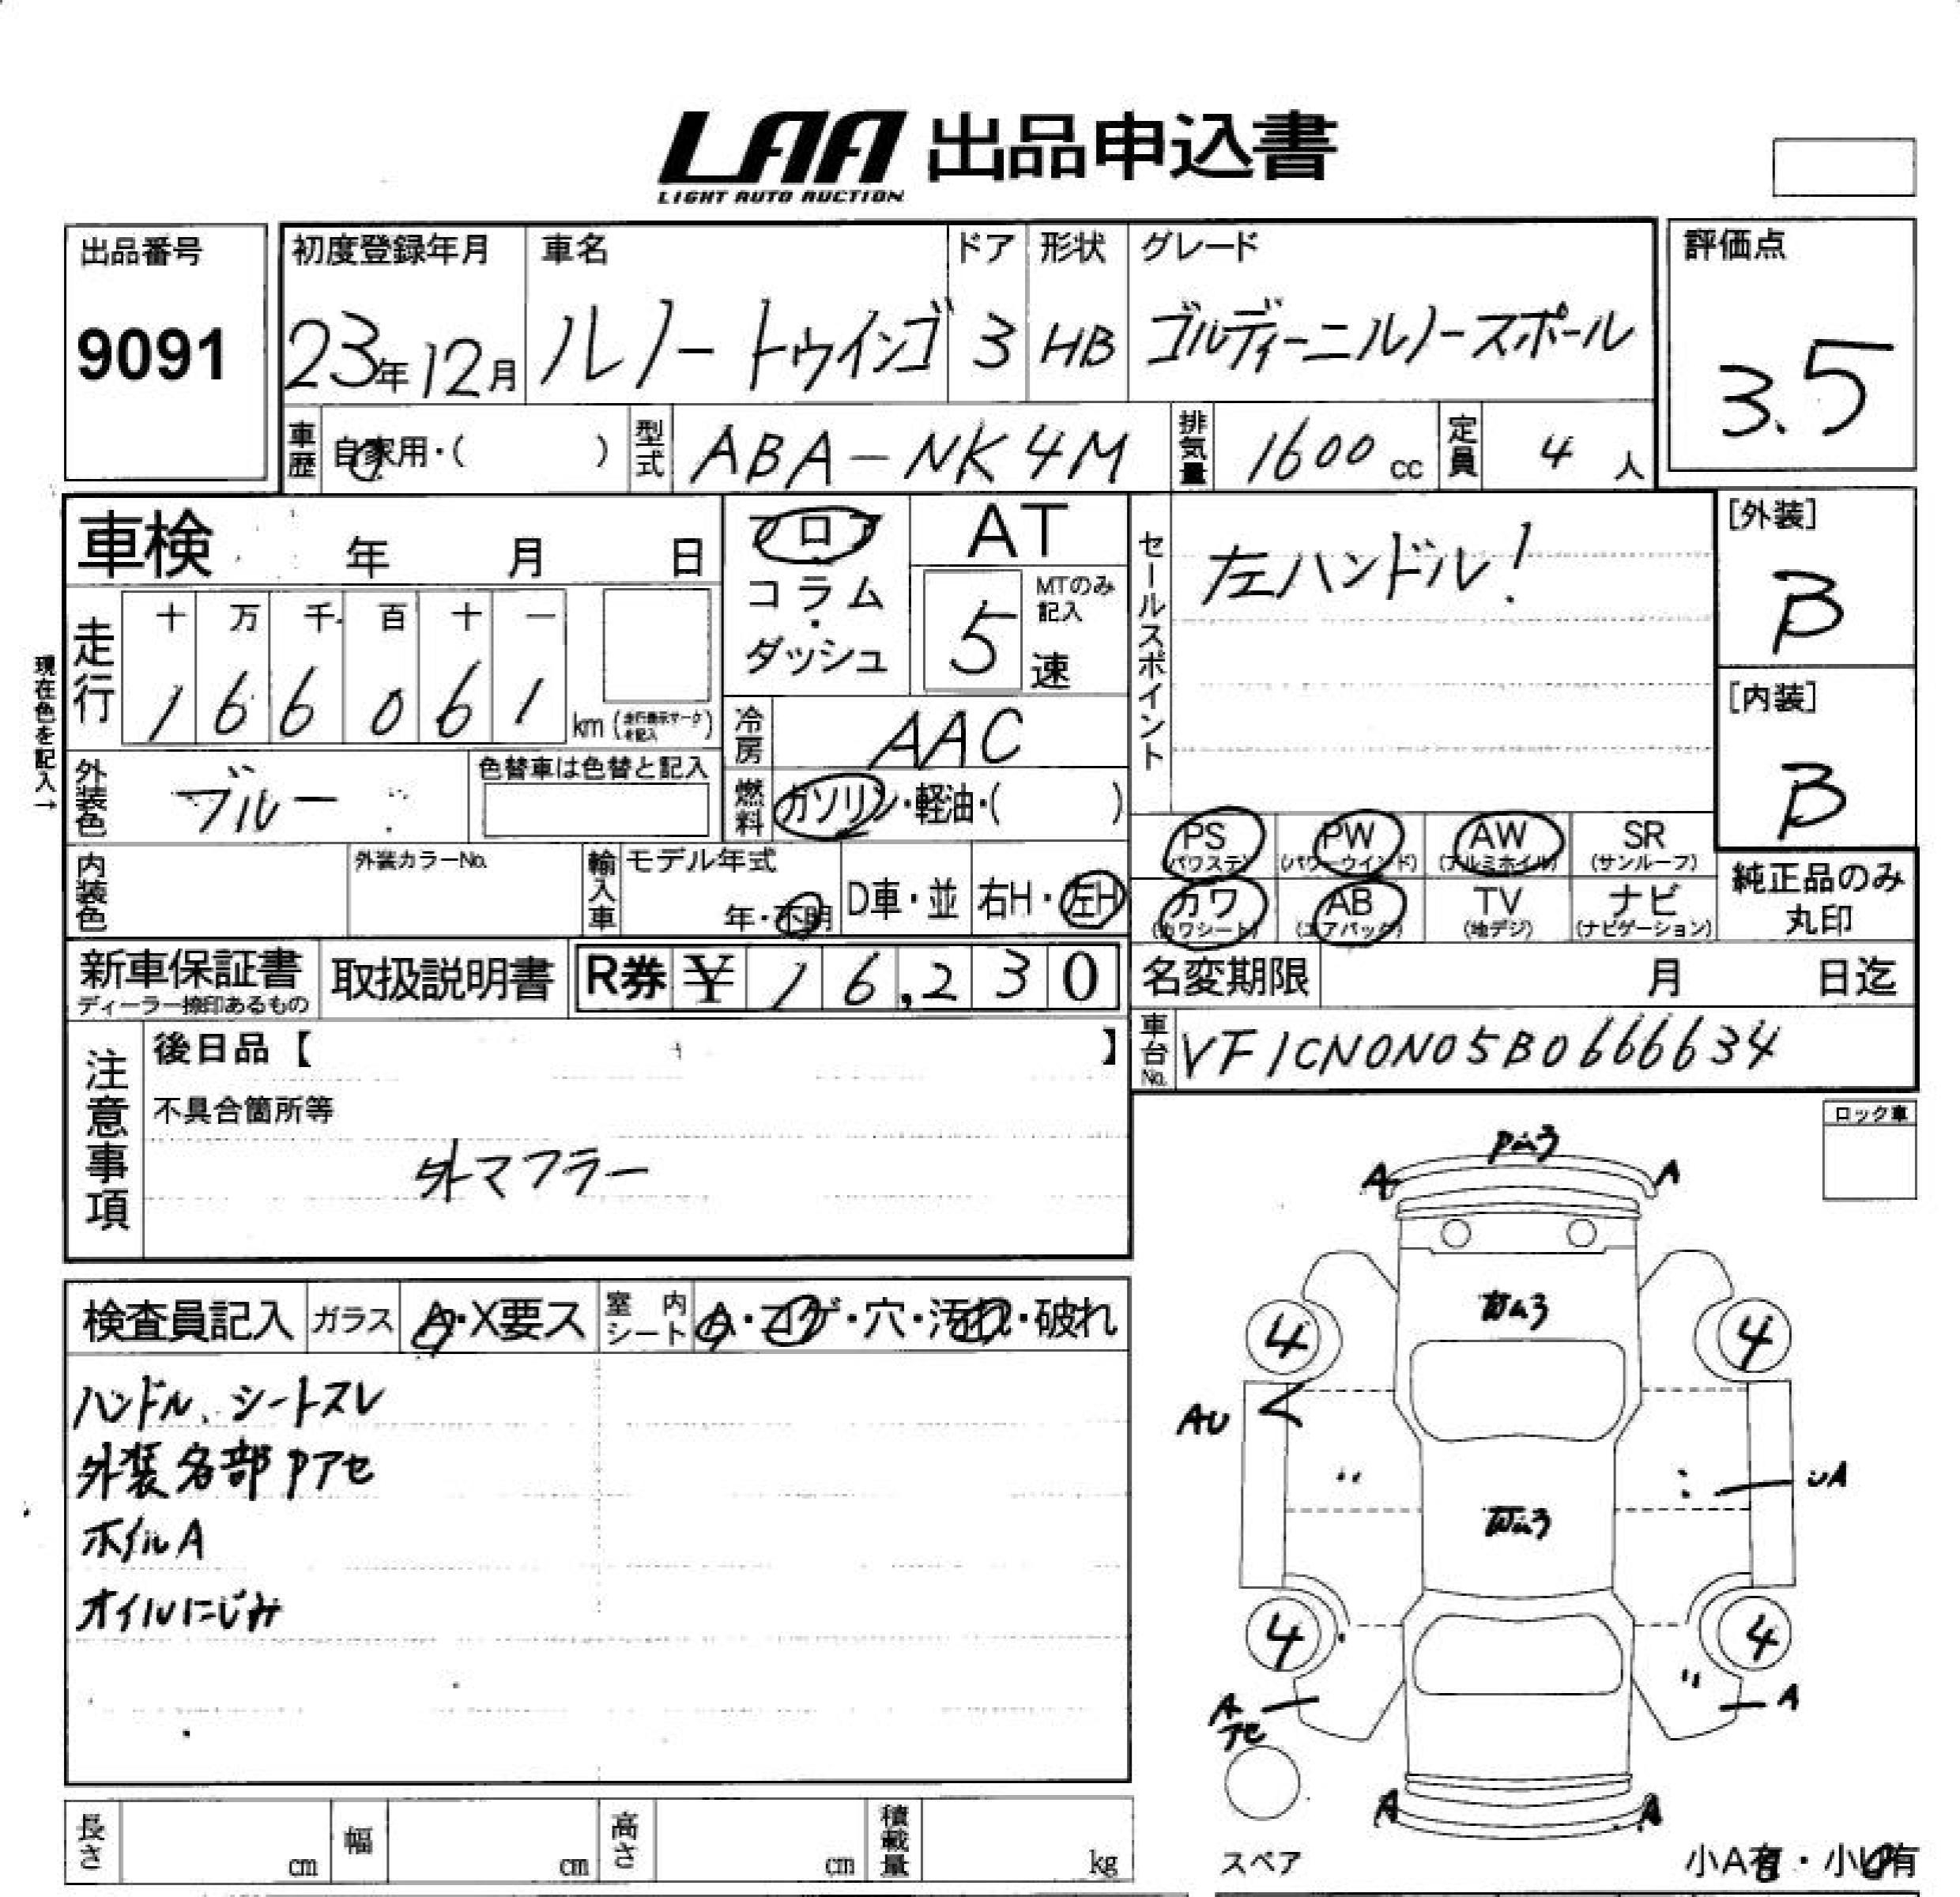 LAA 出品申込書
LIGHT AUTO AUCTION
出品番号
9091
初度登録年月 車名 ドア 形状 グレード
23年12月 ルノートゥインゴ 3 HB ゴルディーニルノースポール
評価点
3.5
車歴 自家用・( ) 型式 ABA-NK4M 排気量 1600cc 定員 4人
車検 年 月 日
フロア
コラム
・
ダッシュ
AT
5
MTのみ
記入
速
セールスポイント
左ハンドル!
[外装]
B
[内装]
B
現在色を記入→
走行 十 万 千 百 十 一
1 6 6 0 6 1 km (走行表示マークを記入)
冷房 AAC
外装色 ブルー 色替車は色替と記入
燃料 ガソリン・軽油・( )
PS (パワステ) PW (パワーウインド) AW (アルミホイル) SR (サンルーフ)
カワ (カワシート) AB (エアバック) TV (地デジ) ナビ (ナビゲーション)
純正品のみ
丸印
内装色 外装カラーNo. 輸入車 モデル年式
年・不明 D車・並 右H・左H
新車保証書 取扱説明書 R券 ¥ 16,230
ディーラー捺印あるもの
名変期限 月 日迄
車台No. VF1CN0N05B0666634
注意事項
後日品【 】
不具合箇所等
外マフラー
ロック車
検査員記入 ガラス A・X要ス 室内シート A・コゲ・穴・汚れ・破れ
ハンドル、シートスレ
外装各部Pアセ
ホイルA
オイルにじみ
A A
4 4
AU
UA
4 4
A
アセ
A
A A
スペア
小A有・小U有
長さ cm 幅 cm 高さ cm 積載量 kg